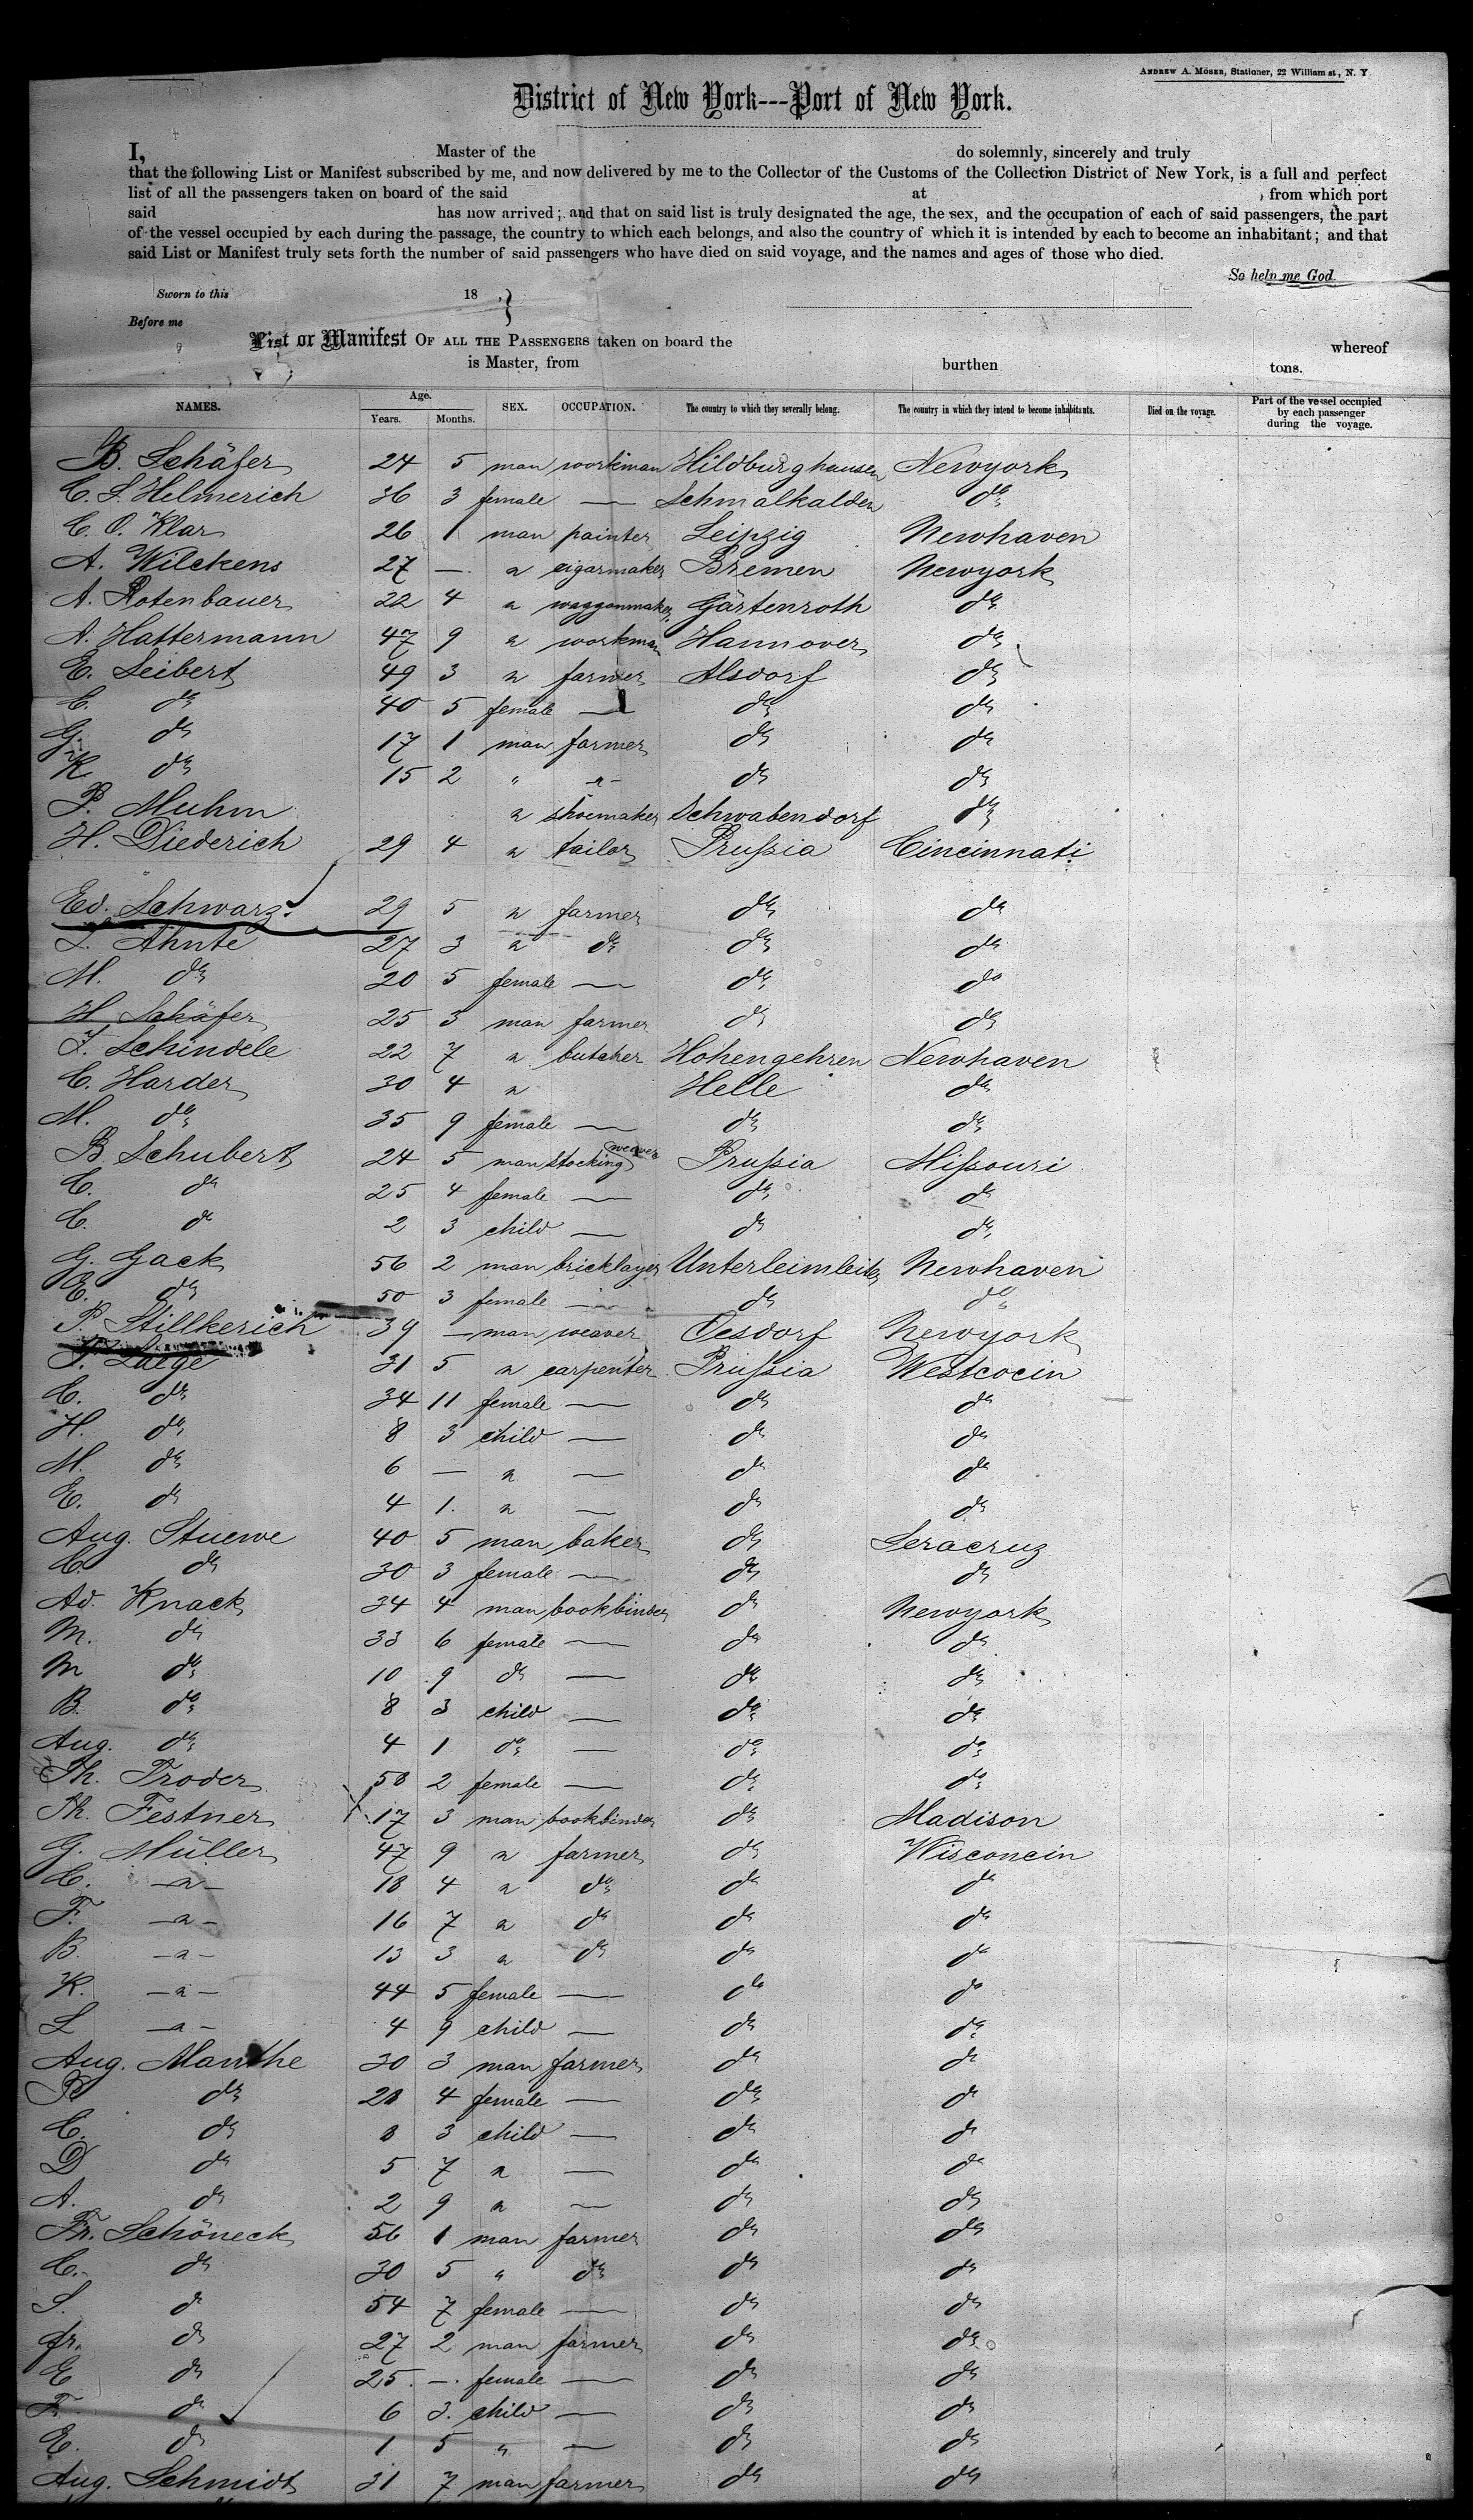 ANDREW A. MOSER, Stationer, 22 William st, N. Y
District of New York---Port of New York.
I, Master of the do solemnly, sincerely and truly
that the following List or Manifest subscribed by me, and now delivered by me to the Collector of the Customs of the Collection District of New York, is a full and perfect
list of all the passengers taken on board of the said at , from which port
said has now arrived; and that on said list is truly designated the age, the sex, and the occupation of each of said passengers, the part
of the vessel occupied by each during the passage, the country to which each belongs, and also the country of which it is intended by each to become an inhabitant; and that
said List or Manifest truly sets forth the number of said passengers who have died on said voyage, and the names and ages of those who died.
So help me God.
Sworn to this 18 . }
Before me
List or Manifest OF ALL THE PASSENGERS taken on board the whereof
is Master, from burthen tons.
NAMES. Age. Years. Months. SEX. OCCUPATION. The country to which they severally belong. The country in which they intend to become inhabitants. Died on the voyage. Part of the vessel occupied by each passenger during the voyage.
B. Schäfer 24 5 man workman Hildburghausen Newyork
C. S. Helmerich 36 3 female — Schmalkalden do
C. O. Klar 26 1 man painter Leipzig Newhaven
A. Wilckens 27 — " cigarmaker Bremen Newyork
A. Rotenbauer 22 4 " waggonmaker Gärtenroth do
A. Hattermann 47 9 " workman Hannover do
E. Seibert 49 3 " farmer Alsdorf do
C. do 40 5 female — do do
G. do 17 1 man farmer do do
K. do 15 2 " -"- do do
P. Muhm " shoemaker Schwabendorf do
H. Diederich 29 4 " tailor Prussia Cincinnati
Ed. Schwarz. 29 5 " farmer do do
L. Ahnte 27 3 " do do do
M. do 20 5 female — do do
H Schäfer 25 3 man farmer do do
F. Schindele 22 7 " butcher Hohengehren Newhaven
C. Harder 30 4 " Helle do
M. do 35 9 female — do do
B. Schubert 24 5 man stocking weaver Prussia Missouri
C. do 25 4 female — do do
C. do 2 3 child — do do
G. Gack 56 2 man bricklayer Unterleimleiter Newhaven
E. do 50 3 female — do do
P. Stillkerich 39 — man weaver Oesdorf Newyork
F. Laege 31 5 " carpenter Prussia Westcocin
C. do 34 11 female — do do
H. do 8 3 child — do do
M. do 6 — " — do do
E. do 4 1. " — do do
Aug. Stuewe 40 5 man baker do Seracruz
C. do 30 3 female — do do
Ad. Knack 34 4 man bookbinder do Newyork
M. do 33 6 female — do do
M do 10 9 do — do do
B. do 8 3 child — do do
Aug. do 4 1 do — do do
Th. Troder 58 2 female — do do
Th. Festner 17 3 man bookbinder do Madison
G. Müller 47 9 " farmer do Wisconcin
C. -"- 18 4 " do do do
F. -"- 16 7 " do do do
B. -"- 13 3 " do do do
K. -"- 44 5 female — do do
L -"- 4 9 child — do do
Aug. Manthe 30 3 man farmer do do
R do 28 4 female — do do
C. do 8 3 child — do do
D do 5 7 " — do do
A. do 2 9 " — do do
Fr. Schöneck 56 1 man farmer do do
C. do 30 5 " do do do
S. do 54 7 female — do do
fr. do 27 2 man farmer do do
E do 25. —. female — do do
F. do 6 3. child — do do
E. do 1 5 " — do do
Aug. Schmidt 31 7 man farmer do do